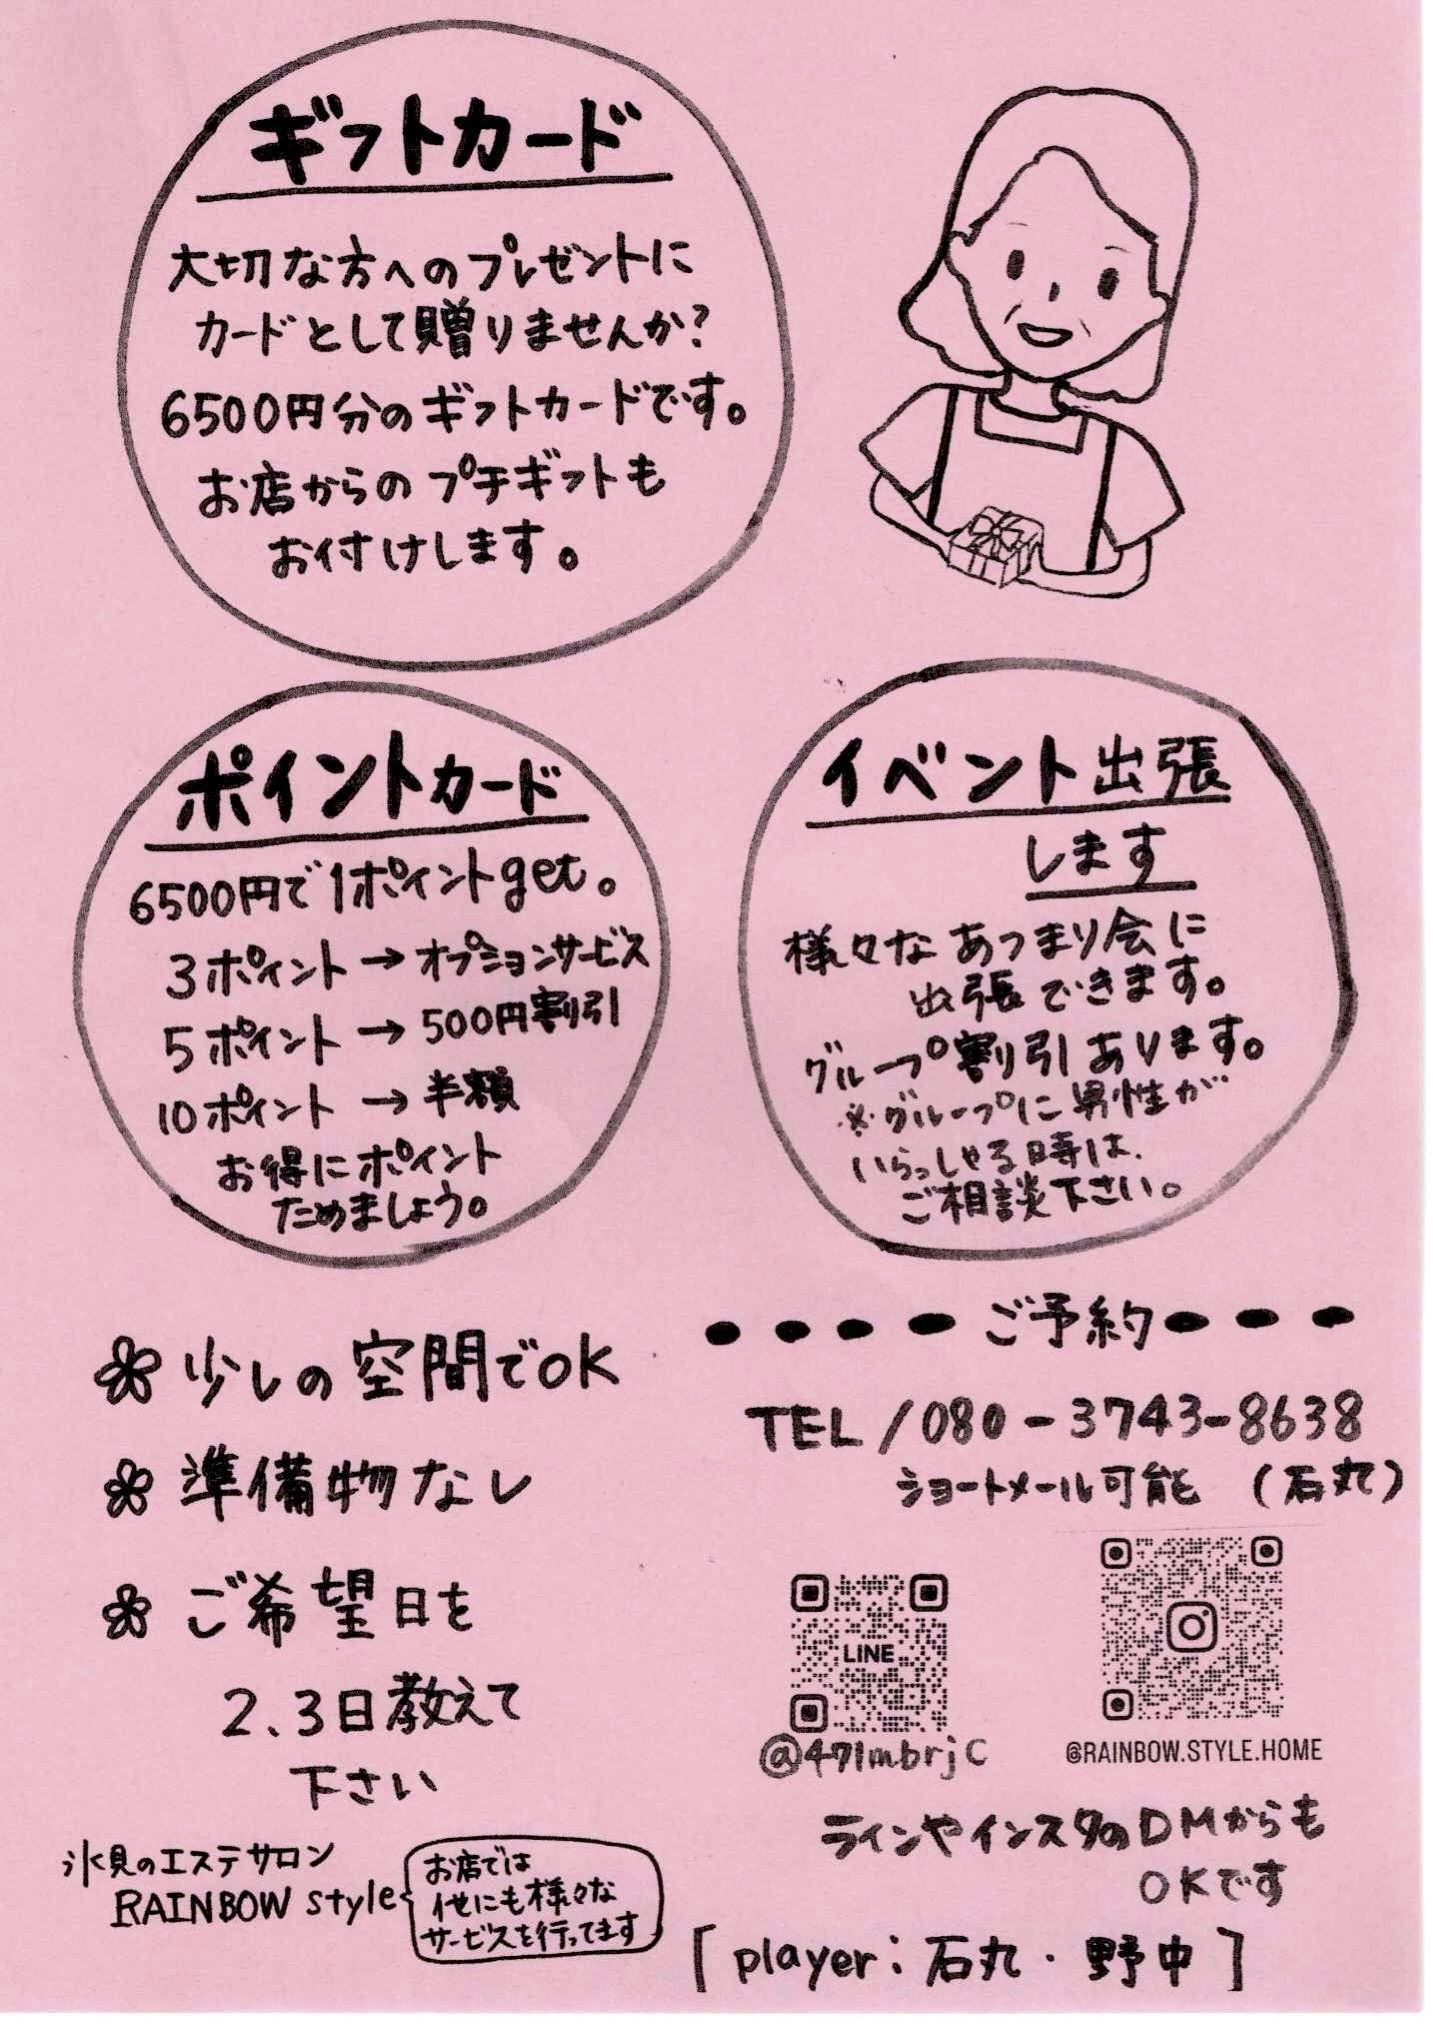 ギフトカード
大切な方へのプレゼントに
カードとして贈りませんか?
6500円分のギフトカードです。
お店からのプチギフトも
お付けします。
ポイントカード
6500円で1ポイントget。
3ポイント→オプションサービス
5ポイント→500円割引
10ポイント→半額
お得にポイント
ためましょう。
イベント出張
します
様々なあつまり会に
出張できます。
グループ割引あります。
※グループに男性が
いらっしゃる時は、
ご相談下さい。
少しの空間でOK
準備物なし
ご希望日を
2、3日教えて
下さい
氷見のエステサロン
RAINBOW style
お店では
他にも様々な
サービスを行ってます
ご予約
TEL/080-3743-8638
ショートメール可能 (石丸)
LINE
@471mbrjC
@RAINBOW.STYLE.HOME
ラインやインスタのDMからも
OKです
[player:石丸・野中]